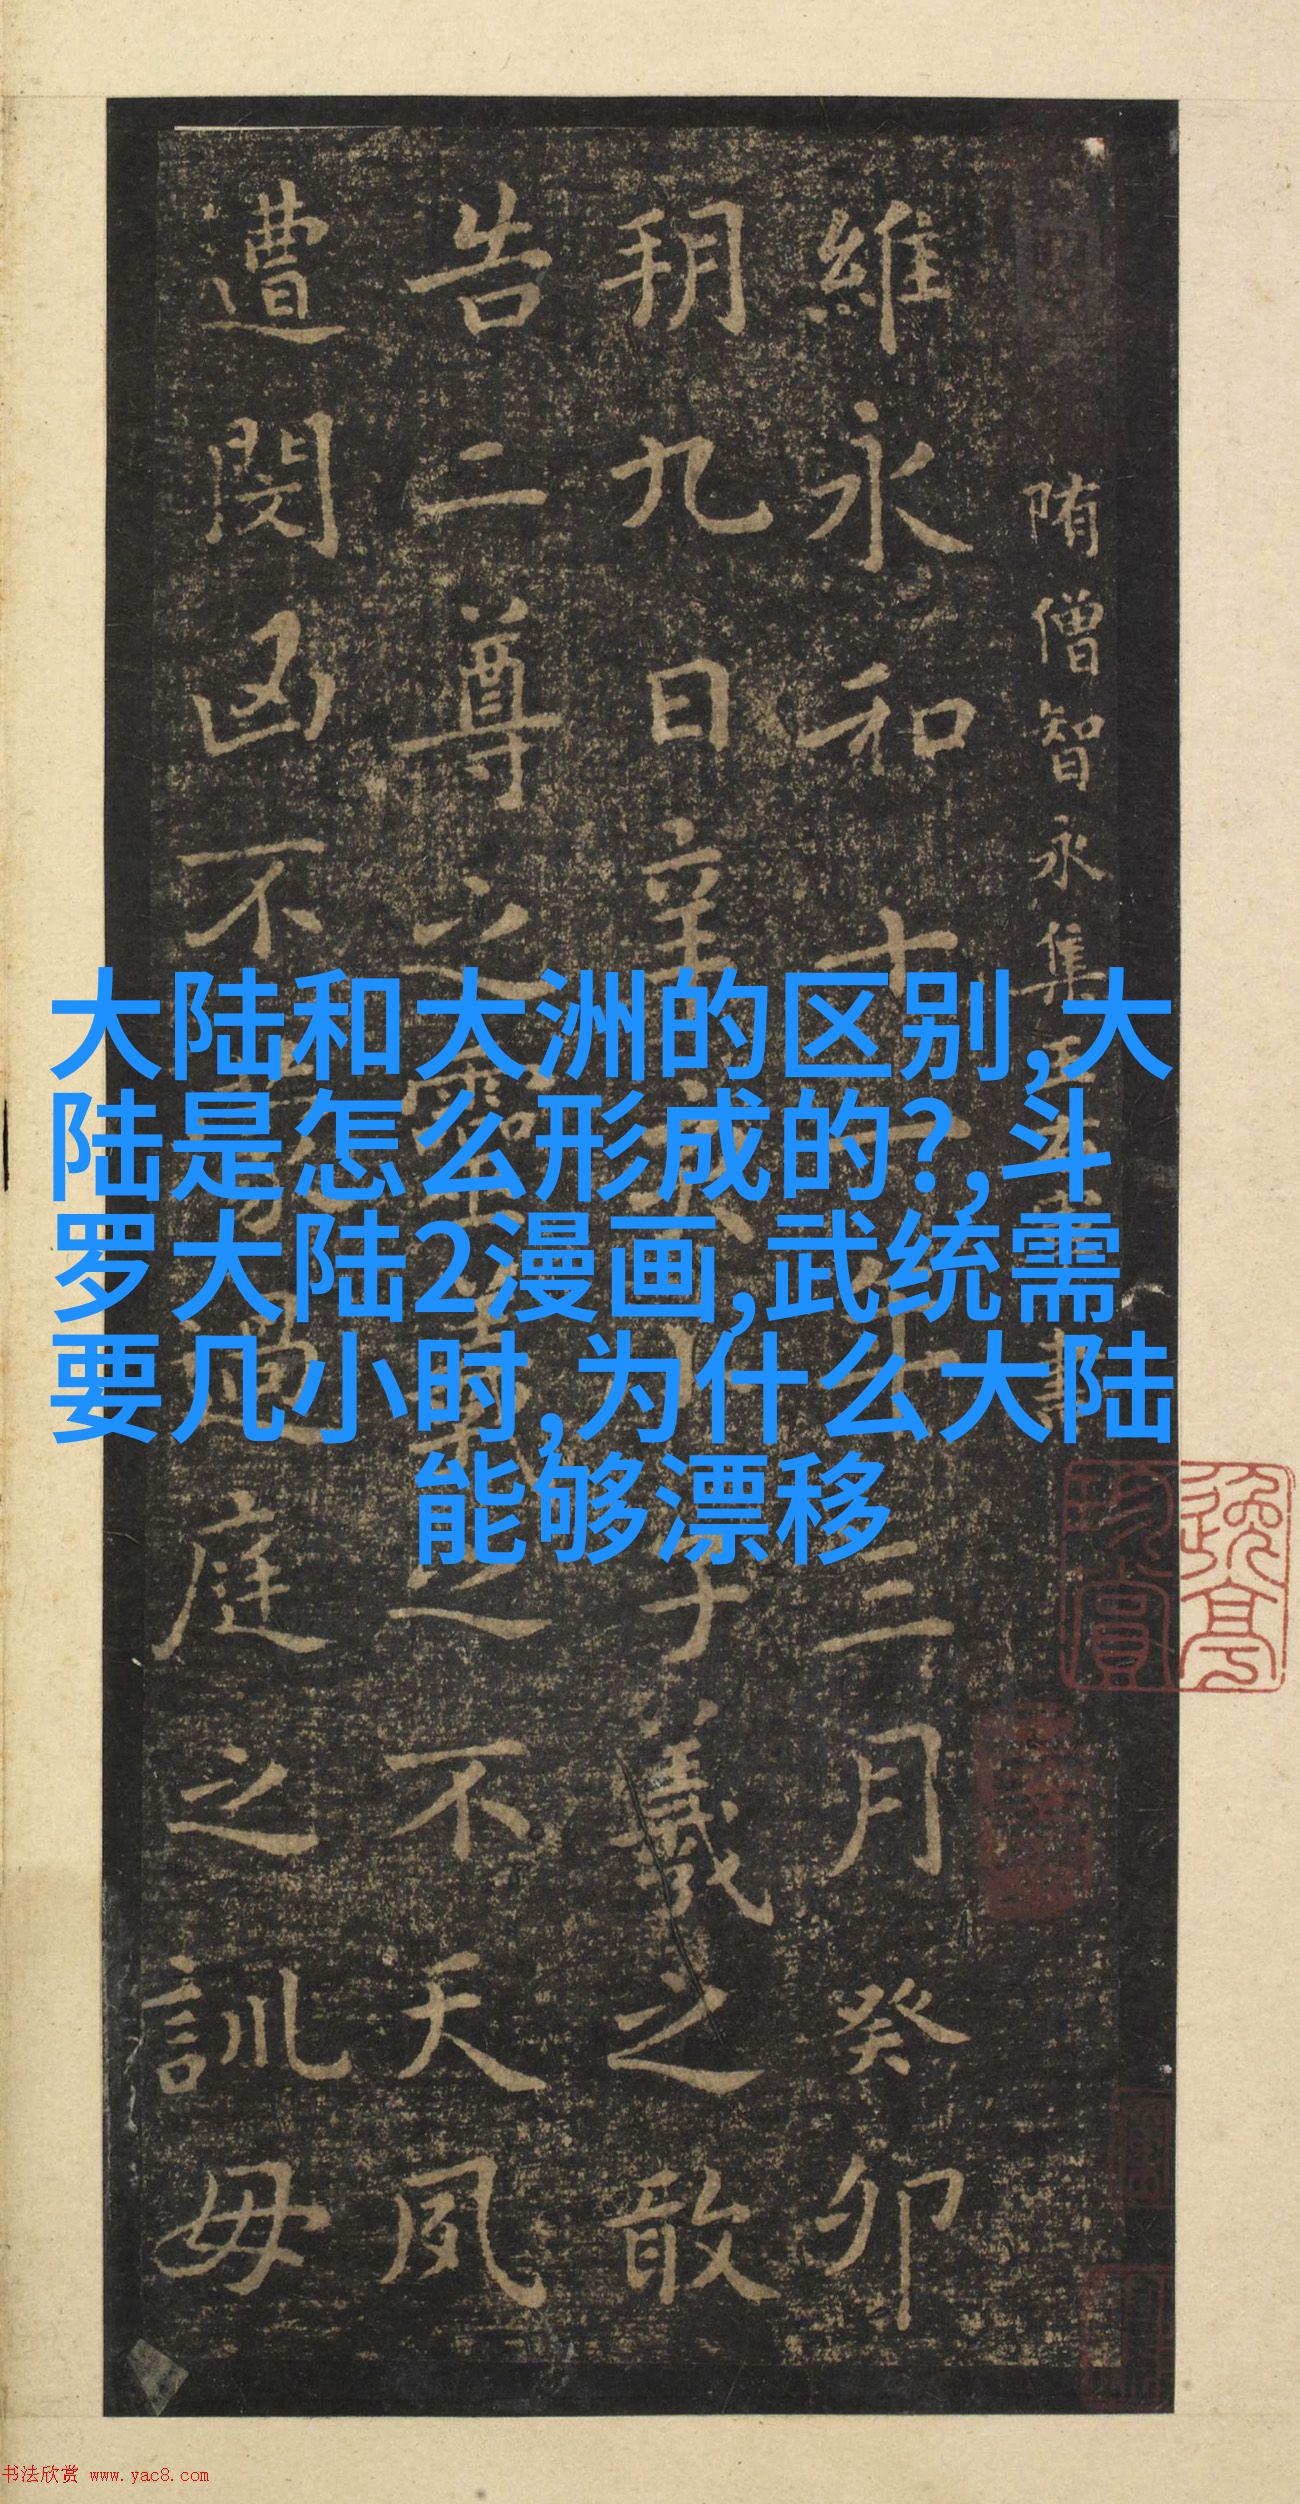 隋僧智永集王書
維永和十一年三月癸卯
朔九日辛亥小子羲之敢
告二尊之靈羲之不天夙
遭閔凶不蒙過庭之訓毋
大陆和大洲的区别,大
陆是怎么形成的?,斗
罗大陆2漫画,武统需
要几小时,为什么大陆
能够漂移
书法欣赏 www.yac8.com